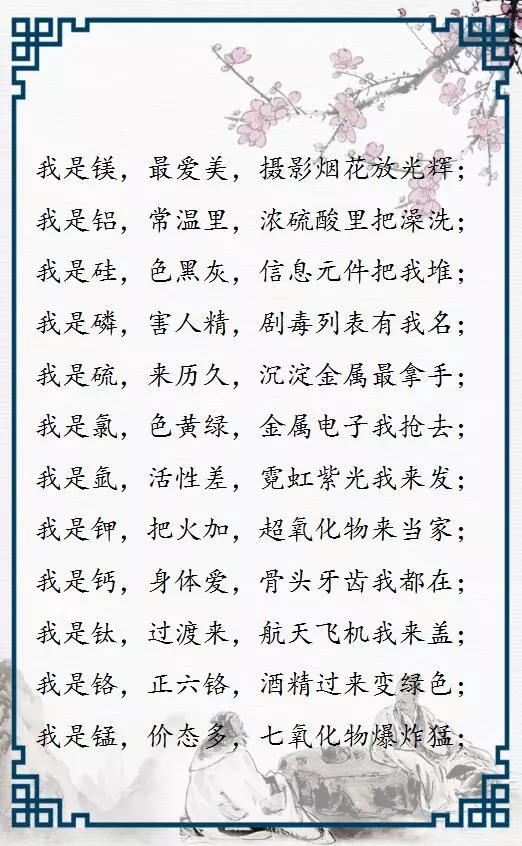 我是镁，最爱美，摄影烟花放光辉；
我是铝，常温里，浓硫酸里把澡洗；
我是硅，色黑灰，信息元件把我堆；
我是磷，害人精，剧毒列表有我名；
我是硫，来历久，沉淀金属最拿手；
我是氯，色黄绿，金属电子我抢去；
我是氩，活性差，霓虹紫光我来发；
我是钾，把火加，超氧化物来当家；
我是钙，身体爱，骨头牙齿我都在；
我是钛，过渡来，航天飞机我来盖；
我是铬，正六铬，酒精过来变绿色；
我是锰，价态多，七氧化物爆炸猛；